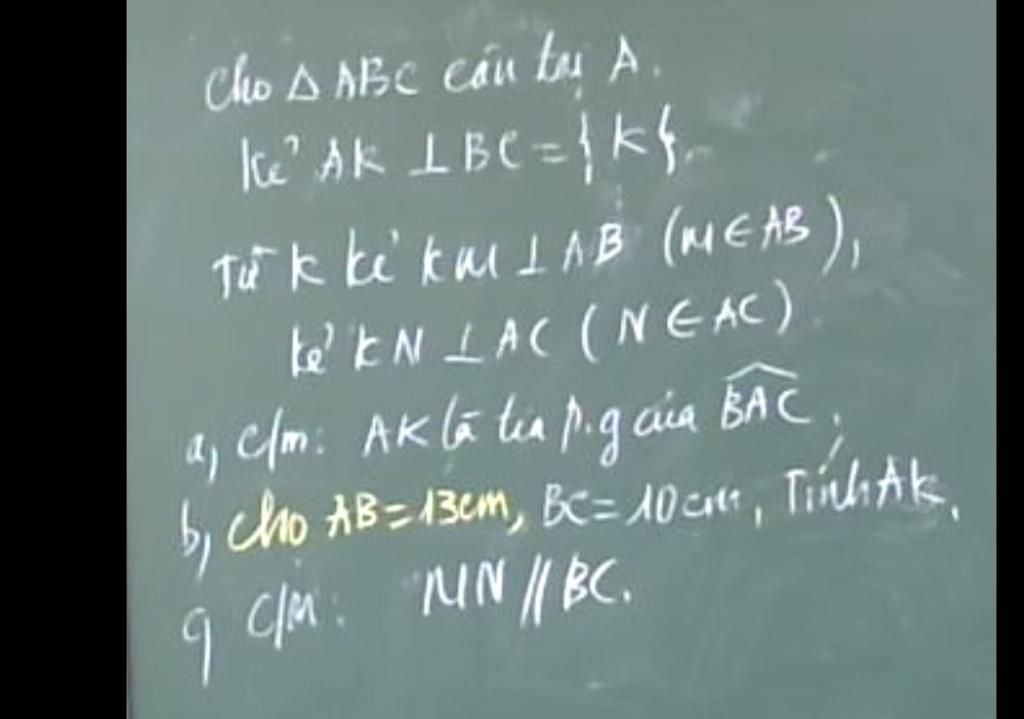 Cho Δ ABC cân tại A.
Kẻ AK ⊥ BC = {K}.
Từ K kẻ KM ⊥ AB (M ∈ AB),
kẻ KN ⊥ AC (N ∈ AC)
a, C/m: AK là tia p.g của \widehat{BAC}.
b, Cho AB = 13cm, BC = 10cm, Tính AK.
c, C/m: MN // BC.